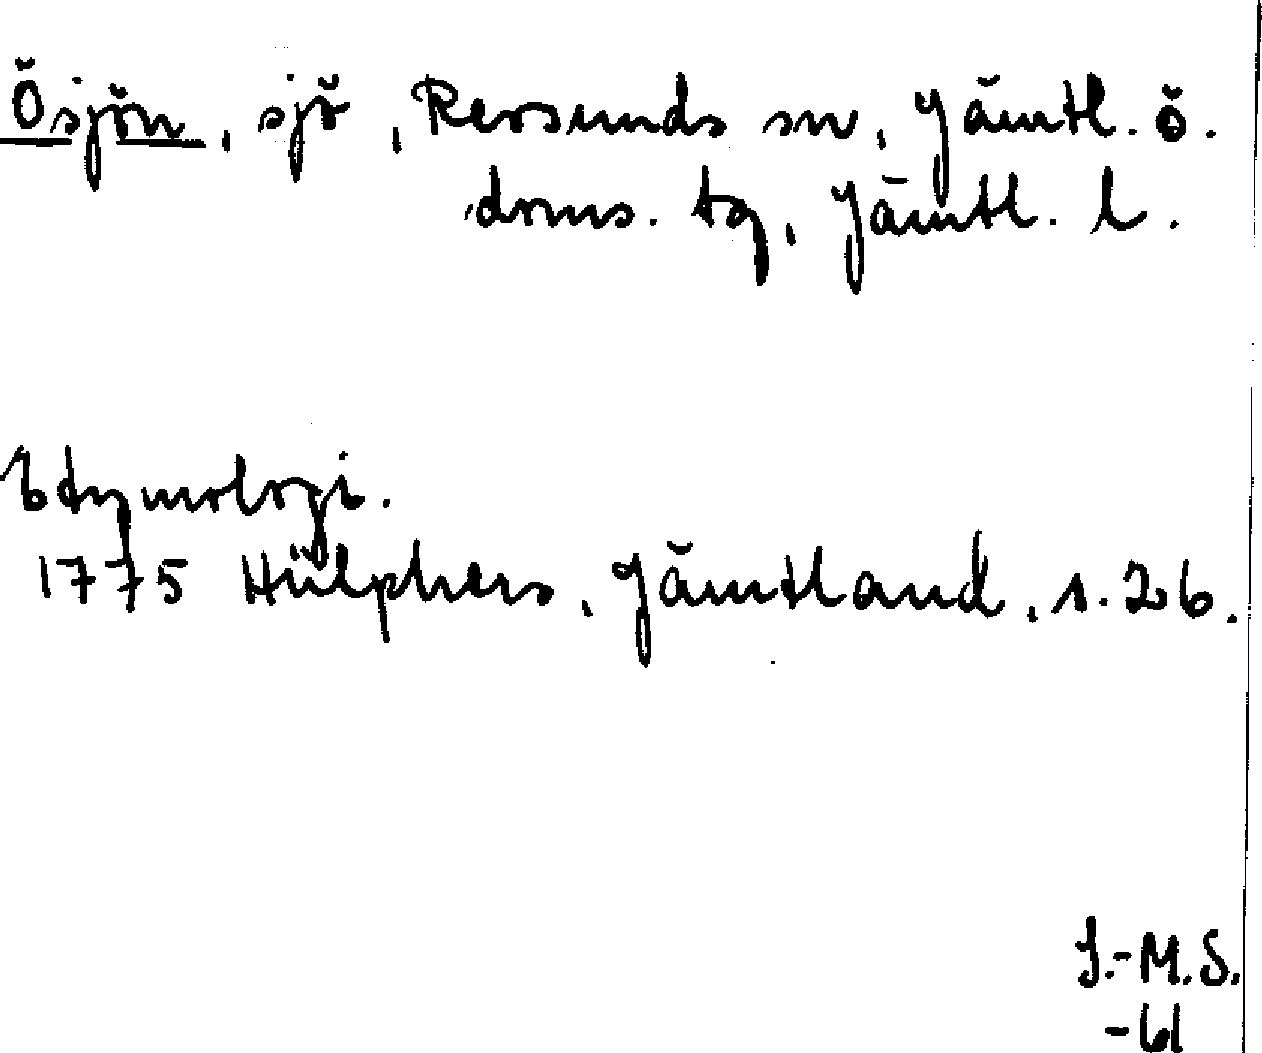 Ösjön, sjö, Revsunds sn, Jämtl. ö.
doms. tg, Jämtl. l.
Etymologi.
1775 Hülphers, Jämtland, s. 26.
I.-M.S.
-61